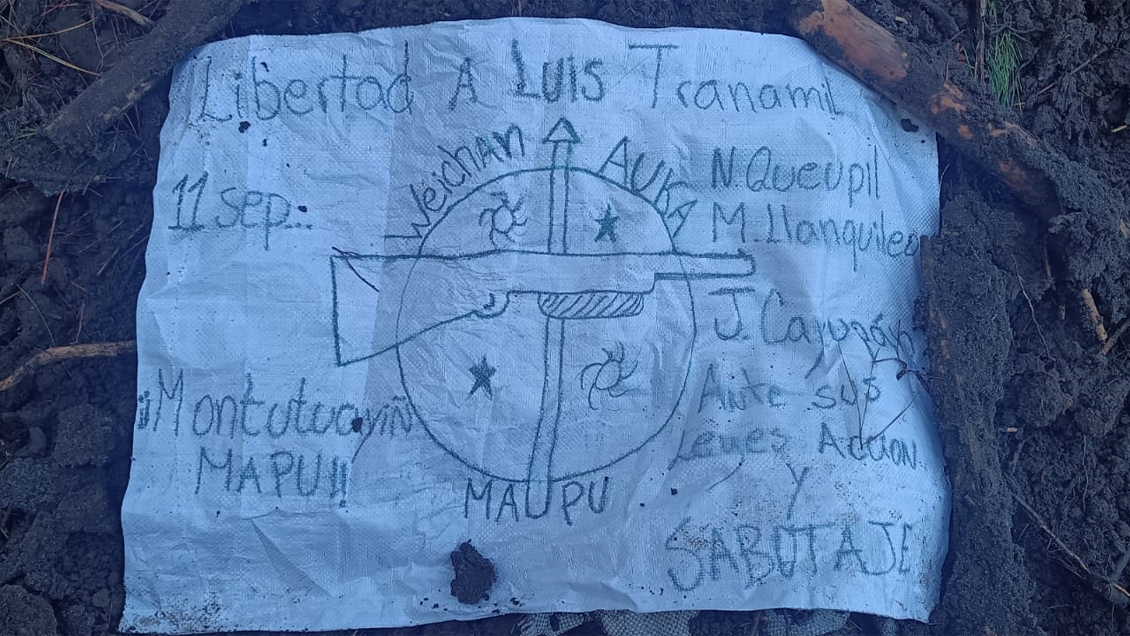 Libertad A LUIS Tranamil
Weichan AUKA
11 sep...
N. Queupil
M. Llanquileo
J. Cayupán
¡¡Montutuayiñ
MAPU!!
Ante sus
leyes Acción
y
SABOTAJE
MAUPU